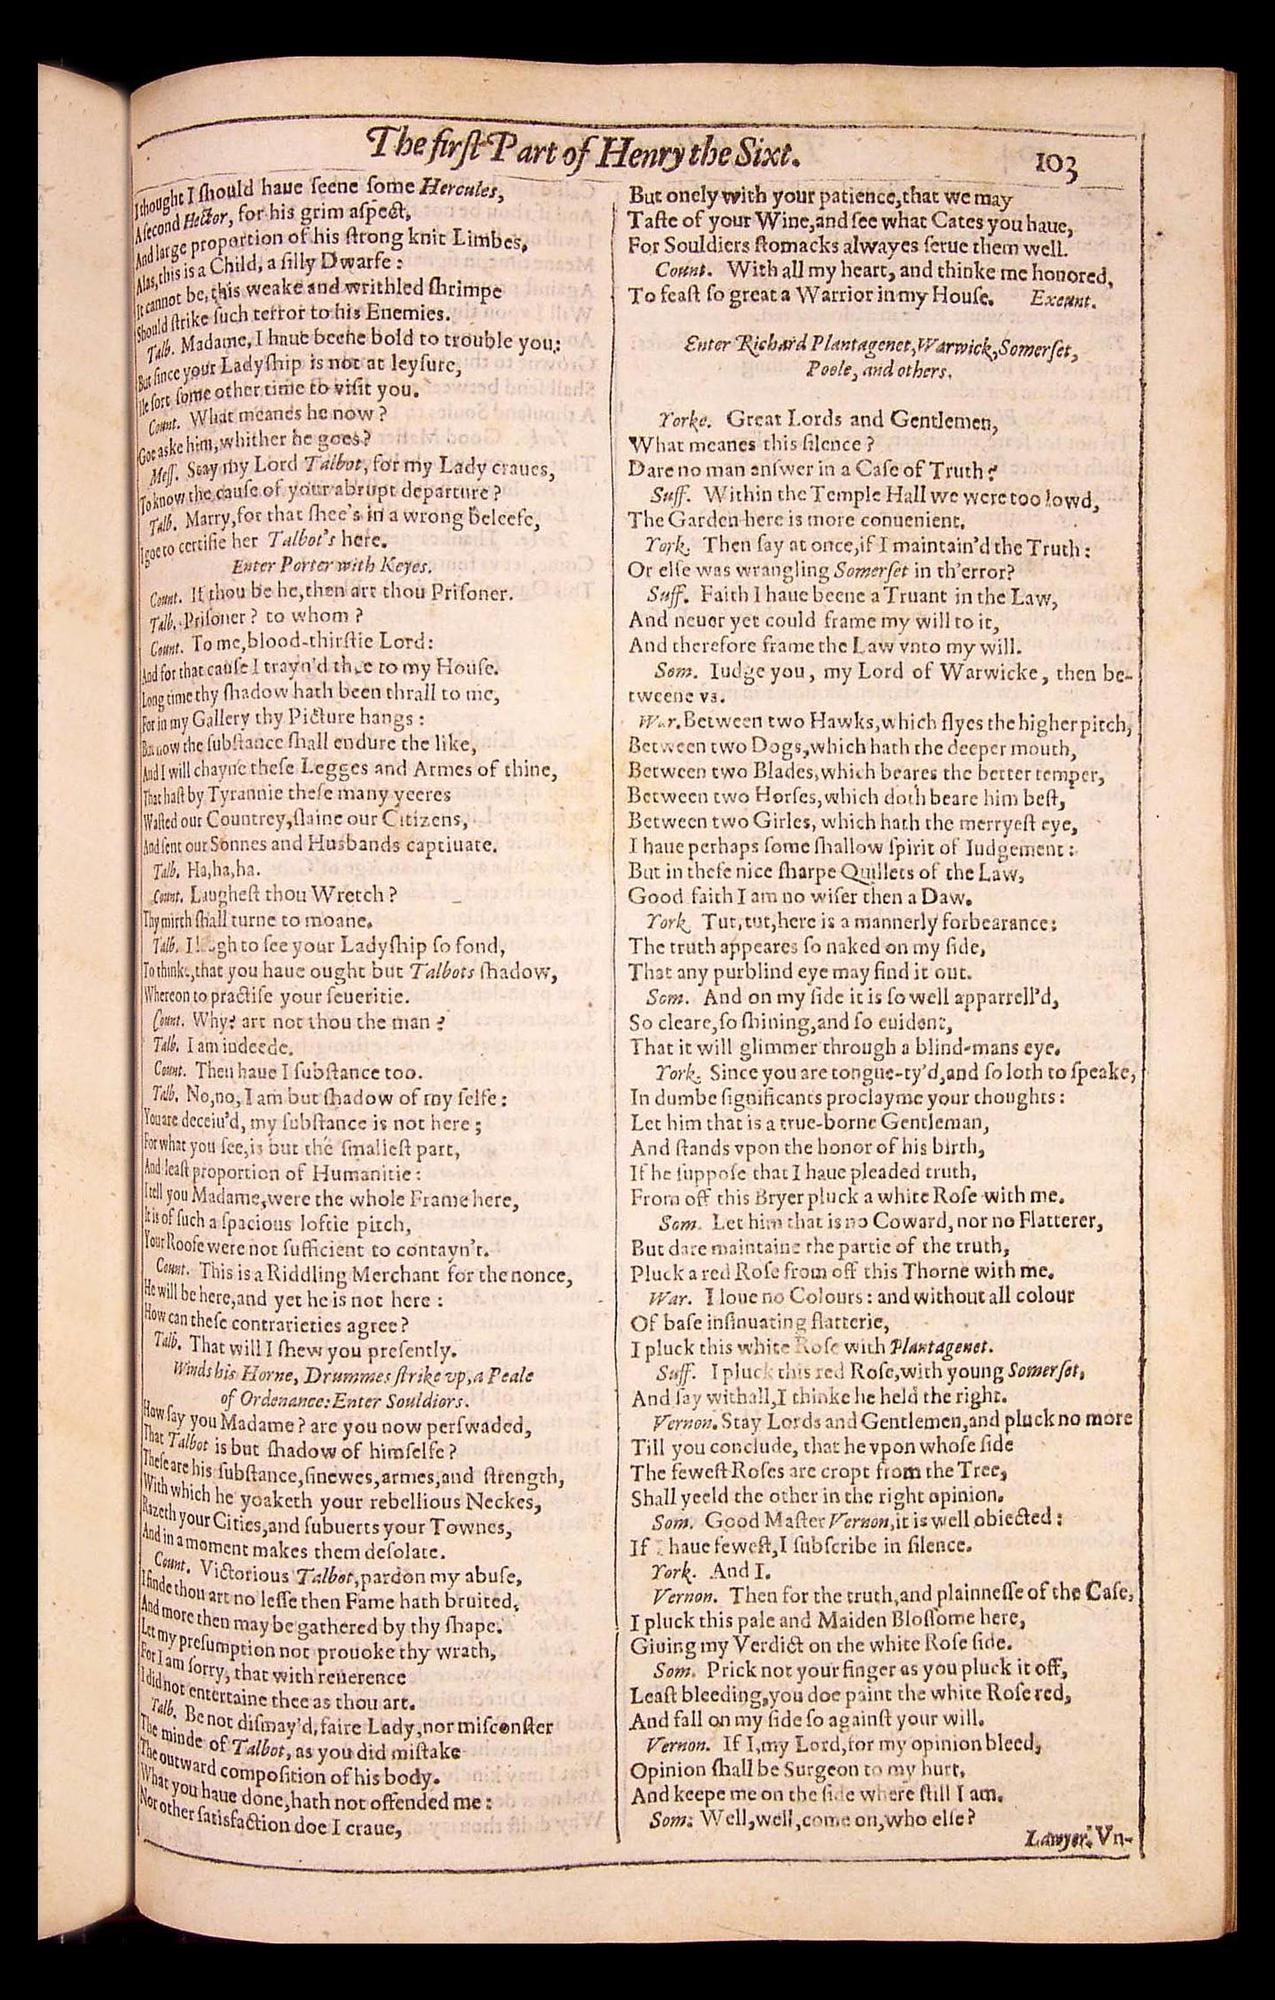 The first Part of Henry the Sixt. 103
I thought I should haue seene some Hercules,
A second Hector, for his grim aspect,
And large proportion of his strong knit Limbes.
Alas, this is a Child, a silly Dwarfe:
It cannot be, this weake and writhled shrimpe
Should strike such terror to his Enemies.
Talb. Madame, I haue beene bold to trouble you:
But since your Ladyship is not at leysure,
Ile sort some other time to visit you.
Count. What meanes he now?
Goe aske him, whither he goes?
Mess. Stay my Lord Talbot, for my Lady craues,
To know the cause of your abrupt departure?
Talb. Marry, for that shee's in a wrong beleefe,
I goe to certifie her Talbot's here.
Enter Porter with Keyes.
Count. If thou be he, then art thou Prisoner.
Talb. Prisoner? to whom?
Count. To me, blood-thirstie Lord:
And for that cause I trayn'd thee to my House.
Long time thy shadow hath been thrall to me,
For in my Gallery thy Picture hangs:
But now the substance shall endure the like,
And I will chayne these Legges and Armes of thine,
That hast by Tyrannie these many yeeres
Wasted our Countrey, slaine our Citizens,
And sent our Sonnes and Husbands captiuate.
Talb. Ha, ha, ha.
Count. Laughest thou Wretch?
Thy mirth shall turne to moane.
Talb. I laugh to see your Ladyship so fond,
To thinke, that you haue ought but Talbots shadow,
Whereon to practise your seueritie.
Count. Why? art not thou the man?
Talb. I am indeede.
Count. Then haue I substance too.
Talb. No, no, I am but shadow of my selfe:
You are deceiu'd, my substance is not here;
For what you see, is but the smallest part,
And least proportion of Humanitie:
I tell you Madame, were the whole Frame here,
It is of such a spacious loftie pitch,
Your Roofe were not sufficient to contayn't.
Count. This is a Riddling Merchant for the nonce,
He will be here, and yet he is not here:
How can these contrarieties agree?
Talb. That will I shew you presently.
Winds his Horne, Drummes strike vp, a Peale
of Ordenance: Enter Souldiors.
How say you Madame? are you now perswaded,
That Talbot is but shadow of himselfe?
These are his substance, sinewes, armes, and strength,
With which he yoaketh your rebellious Neckes,
Razeth your Cities, and subuerts your Townes,
And in a moment makes them desolate.
Count. Victorious Talbot, pardon my abuse,
I finde thou art no lesse then Fame hath bruited,
And more then may be gathered by thy shape.
Let my presumption not prouoke thy wrath,
For I am sorry, that with reuerence
I did not entertaine thee as thou art.
Talb. Be not dismay'd, faire Lady, nor misconster
The minde of Talbot, as you did mistake
The outward composition of his body.
What you haue done, hath not offended me:
Nor other satisfaction doe I craue,
But onely with your patience, that we may
Taste of your Wine, and see what Cates you haue,
For Souldiers stomacks alwayes serue them well.
Count. With all my heart, and thinke me honored,
To feast so great a Warrior in my House. Exeunt.
Enter Richard Plantagenet, Warwick, Somerset,
Poole, and others.
Yorke. Great Lords and Gentlemen,
What meanes this silence?
Dare no man answer in a Case of Truth?
Suff. Within the Temple Hall we were too lowd,
The Garden here is more conuenient.
York. Then say at once, if I maintain'd the Truth:
Or else was wrangling Somerset in th'error?
Suff. Faith I haue beene a Truant in the Law,
And neuer yet could frame my will to it,
And therefore frame the Law vnto my will.
Som. Iudge you, my Lord of Warwicke, then be-
tweene vs.
War. Between two Hawks, which flyes the higher pitch,
Between two Dogs, which hath the deeper mouth,
Between two Blades, which beares the better temper,
Between two Horses, which doth beare him best,
Between two Girles, which hath the merryest eye,
I haue perhaps some shallow spirit of Iudgement:
But in these nice sharpe Quillets of the Law,
Good faith I am no wiser then a Daw.
York. Tut, tut, here is a mannerly forbearance:
The truth appeares so naked on my side,
That any purblind eye may find it out.
Som. And on my side it is so well apparrell'd,
So cleare, so shining, and so euident,
That it will glimmer through a blind-mans eye.
York. Since you are tongue-ty'd, and so loth to speake,
In dumbe significants proclayme your thoughts:
Let him that is a true-borne Gentleman,
And stands vpon the honor of his birth,
If he suppose that I haue pleaded truth,
From off this Bryer pluck a white Rose with me.
Som. Let him that is no Coward, nor no Flatterer,
But dare maintaine the partie of the truth,
Pluck a red Rose from off this Thorne with me.
War. I loue no Colours: and without all colour
Of base insinuating flatterie,
I pluck this white Rose with Plantagenet.
Suff. I pluck this red Rose, with young Somerset,
And say withall, I thinke he held the right.
Vernon. Stay Lords and Gentlemen, and pluck no more
Till you conclude, that he vpon whose side
The fewest Roses are cropt from the Tree,
Shall yeeld the other in the right opinion.
Som. Good Master Vernon, it is well obiected:
If I haue fewest, I subscribe in silence.
York. And I.
Vernon. Then for the truth, and plainnesse of the Case,
I pluck this pale and Maiden Blossome here,
Giuing my Verdict on the white Rose side.
Som. Prick not your finger as you pluck it off,
Least bleeding, you doe paint the white Rose red,
And fall on my side so against your will.
Vernon. If I, my Lord, for my opinion bleed,
Opinion shall be Surgeon to my hurt,
And keepe me on the side where still I am.
Som: Well, well, come on, who else?
Lawyer. Vn-